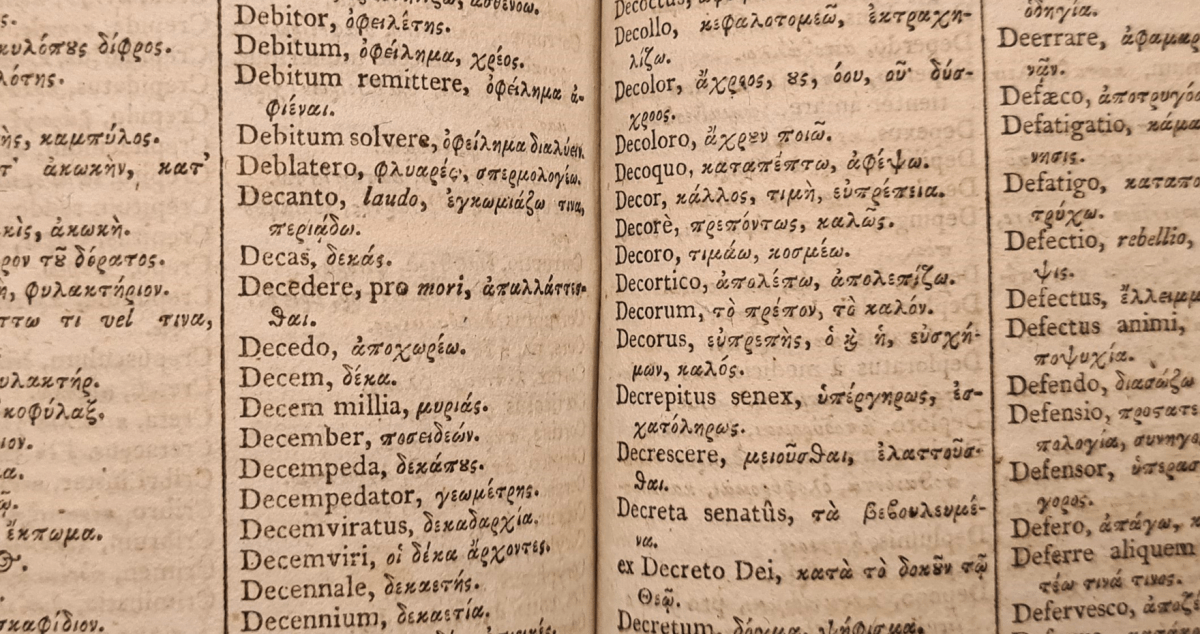 κυλόπους δίφρος.
λότης.
ῆς, καμπύλος.
τ' ἀκωκὴν, κατ'
κὶς, ἀκωκὴ.
ρον τοῦ δόρατος.
η, φυλακτήριον.
ττω τι vel τινα,
υλακτήρ.
κοφύλαξ.
ιον.
ἔκπωμα.
σκαφίδιον.
Debitor, ὀφειλέτης.
Debitum, ὀφείλημα, χρέος.
Debitum remittere, ὀφείλημα ἀ-
φιέναι.
Debitum solvere, ὀφείλημα διαλύειν.
Deblatero, φλυαρέω, σπερμολογέω.
Decanto, laudo, ἐγκωμιάζω τινα,
περιάδω.
Decas, δεκάς.
Decedere, pro mori, ἀπαλλάττεσ-
θαι.
Decedo, ἀποχωρέω.
Decem, δέκα.
Decem millia, μυριάς.
December, ποσειδεών.
Decempeda, δεκάπους.
Decempedator, γεωμέτρης.
Decemviratus, δεκαδαρχία.
Decemviri, οἱ δέκα ἄρχοντες.
Decennale, δεκαετής.
Decennium, δεκαετία.
Decollo, κεφαλοτομεῶ, ἐκτραχη-
λίζω.
Decolor, ἄχροος, ους, όου, οῦ· δύσ-
χροος.
Decoloro, ἄχρουν ποιῶ.
Decoquo, καταπέπτω, ἀφέψω.
Decor, κάλλος, τιμὴ, εὐπρέπεια.
Decorè, πρεπόντως, καλῶς.
Decoro, τιμάω, κοσμέω.
Decortico, ἀπολέπω, ἀπολεπίζω.
Decorum, τὸ πρέπον, τὸ καλόν.
Decorus, εὐπρεπὴς, ὁ ϗ ἡ, εὐσχή-
μων, καλός.
Decrepitus senex, ὑπέργηρως, ἐσ-
χατόληρως.
Decrescere, μειοῦσθαι, ἐλαττοῦσ-
θαι.
Decreta senatûs, τὰ βεβουλευμέ-
να.
ex Decreto Dei, κατὰ τὸ δοκοῦν τῷ
Θεῷ.
Decretum, δόγμα, ψήφισμα.
ὁδηγία.
Deerrare, ἀφαμαρ
νᾷν.
Defæco, ἀποτρυγό
Defatigatio, κάμα
νησις.
Defatigo, καταπο
τρύχω.
Defectio, rebellio,
ψις.
Defectus, ἔλλειμμ
Defectus animi,
ποψυχία.
Defendo, διασώζω
Defensio, προστατε
πολογία, συνηγο
Defensor, ὑπερασ
γορος.
Defero, ἀπάγω,
Deferre aliquem
τέω τινά τινος.
Defervesco, ἀποζέ